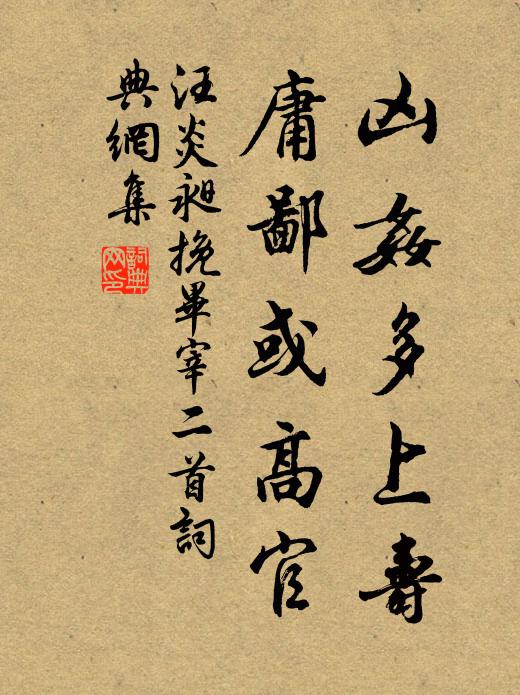 凶姦多上壽
庸鄙或高官
汪炎昶挽畢宰二首詞
典網集
詞典網印